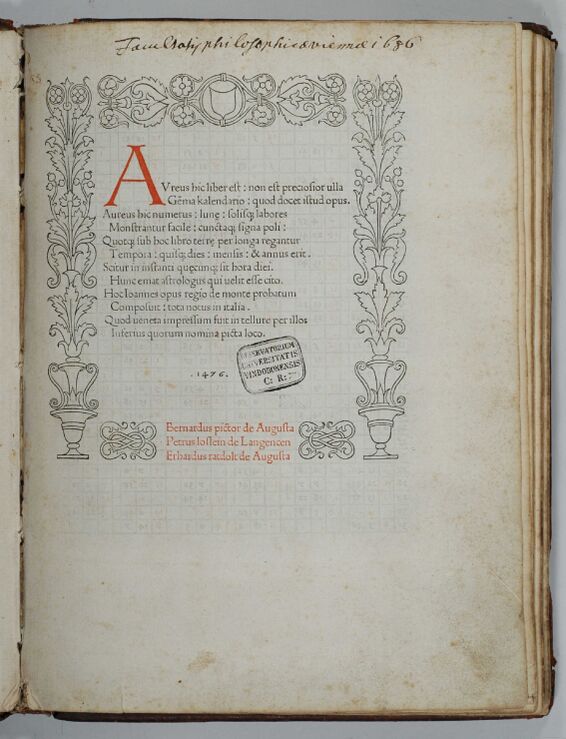 Facultatis philosophicæ viennæ 1686
AVreus hic liber est : non est preciosior ulla
Gēma kalendario : quod docet istud opus.
Aureus hic numerus : lune : solisq; labores
Monstrantur facile : cunctaq; signa poli :
Quotq; sub hoc libro terre per longa regantur
Tempora : quisq; dies : mensis : & annus erit.
Scitur in instanti quęcunq; sit hora diei.
Hunc emat astrologus qui uelit esse cito.
Hoc Ioannes opus regio de monte probatum
Composuit : tota notus in italia.
Quod ueneta impressum fuit in tellure per illos
Inferius quorum nomina picta loco.
.1476.
OBSERVATORIUM
UNIVERSITATIS
VINDOBONENSIS
C: R:
Bernardus pictor de Augusta
Petrus loslein de Langencen
Erhardus ratdolt de Augusta